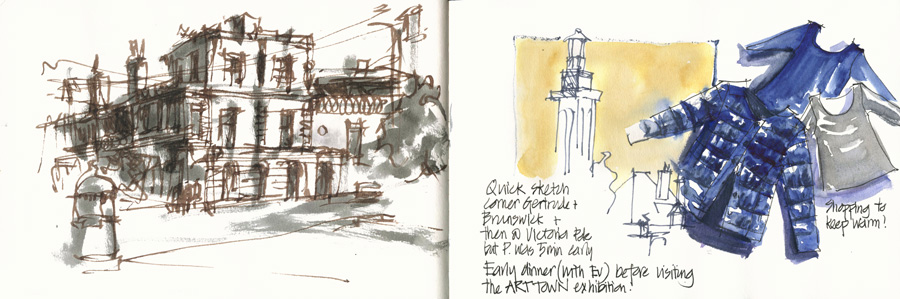 Quick sketch
corner Gertrude +
Brunswick +
then @ Victoria Pde
but P. was 5min early
Early dinner (with Ev) before visiting
the ART TOWN exhibition!
Shopping to
keep warm!